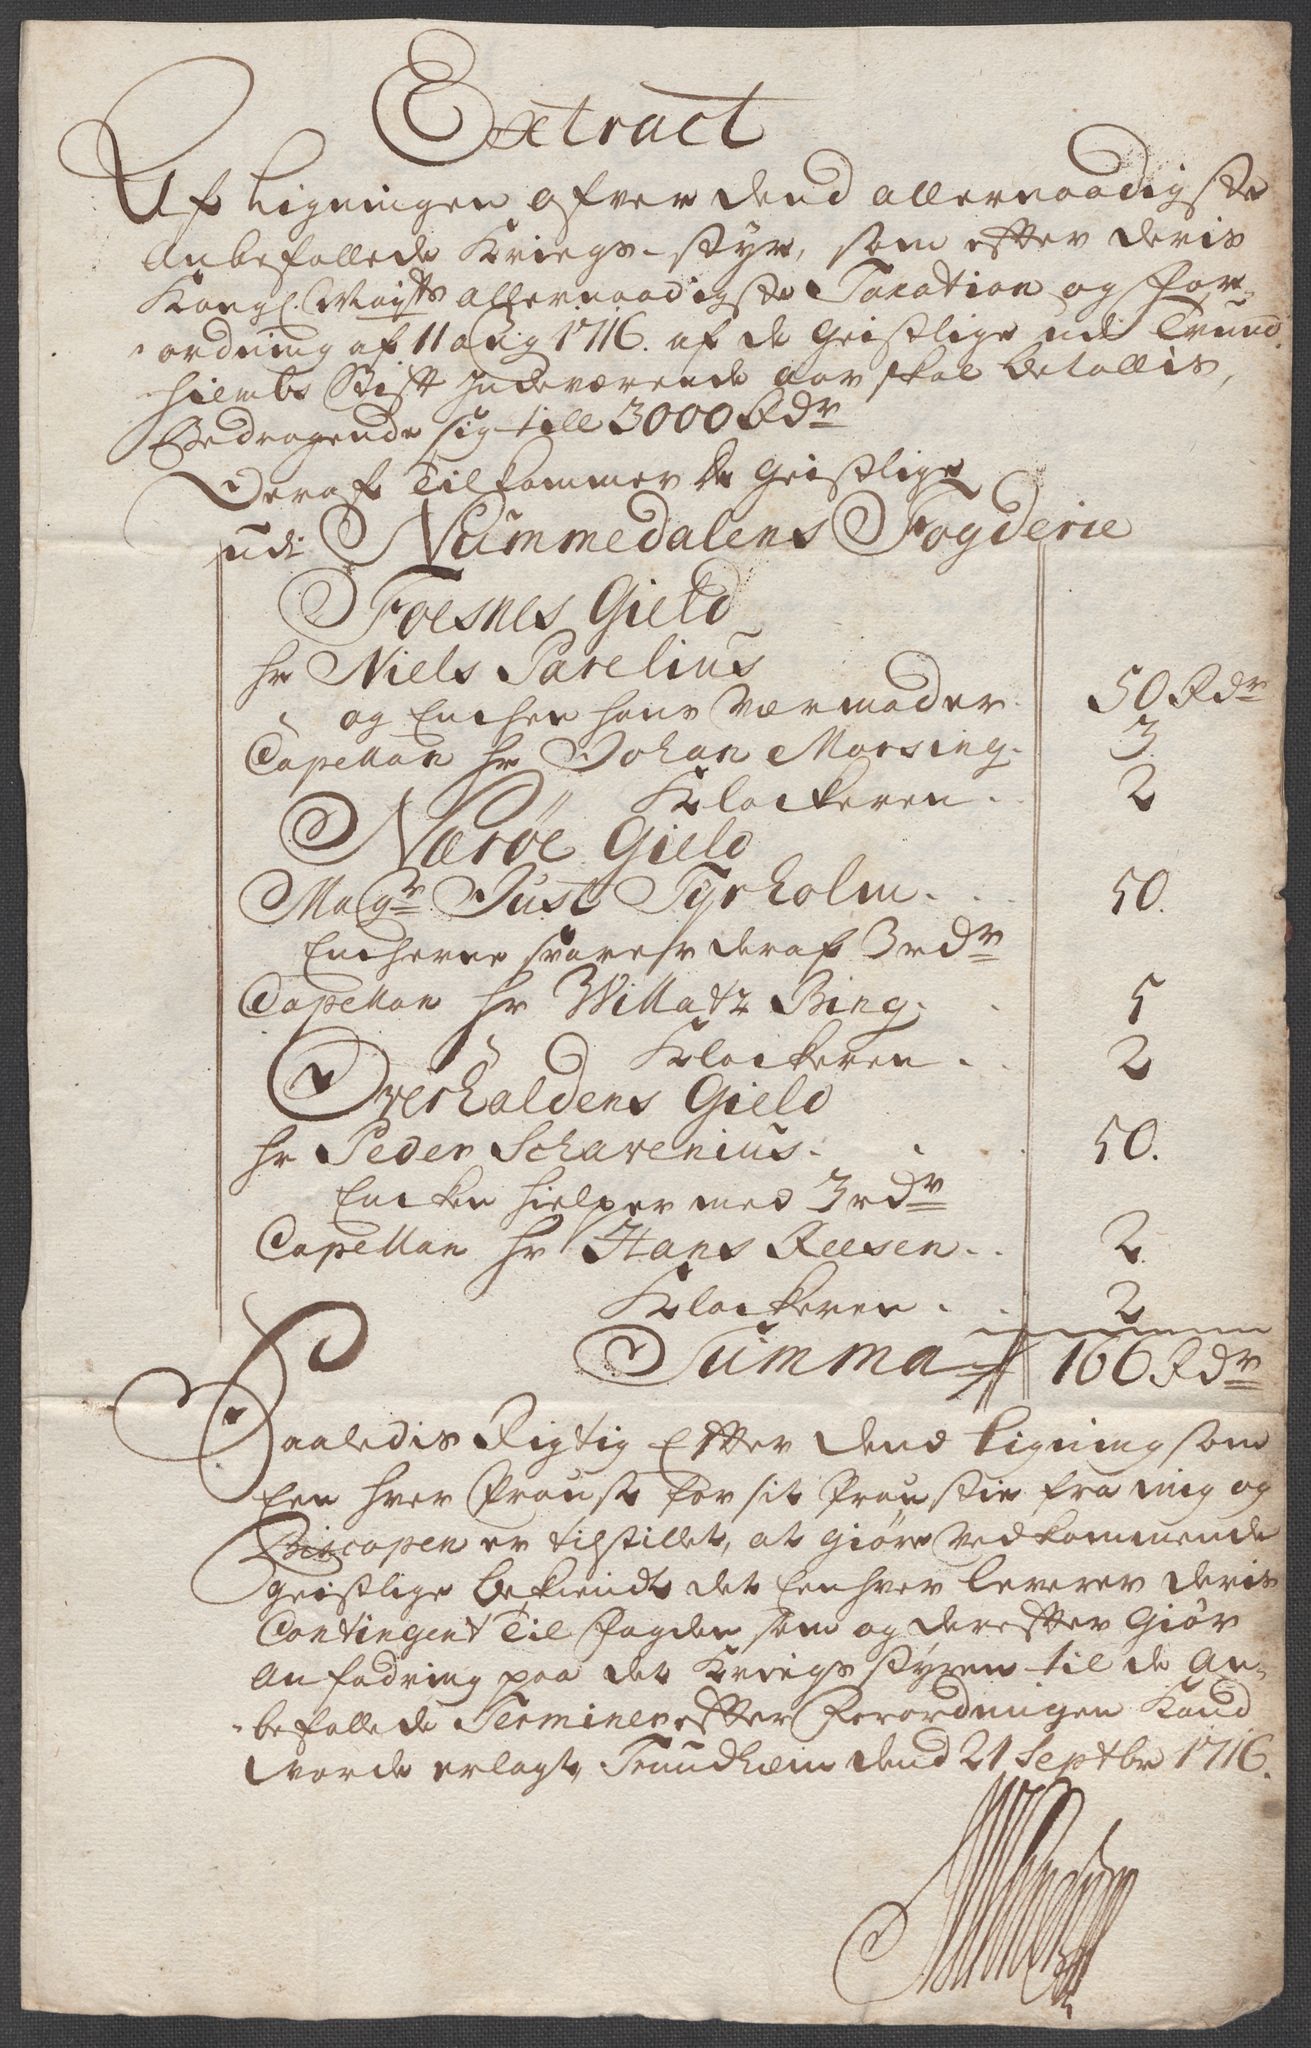 Extract
Af Ligningen ofver dend allernaadigste
Anbefallede Kriegs-styr, som efter deris
Kongl. Mayts allernaadigste Taxation og For-
ordning af 11 Aug 1716. af de Geistlige udi Trund-
hiembs Stift Indeværende aar skal betallis,
Bedragende sig till 3000 Rdr
Deraf Tilkommer de Geistlige
udi Nummedalens Fogderie
Foesnes Gield
hr Niels Parelius
og Enchen hans Værmoder 50 Rdr
Capellan hr Johan Morsing. 3
Klockeren. 2
Nærøe Gield
Magr Just Tyrholm. 50.
Encherne svarer deraf 3 rdr
Capellan hr Willatz Bing. 5
Klockeren. 2
Overhaldens Gield
hr Peder Schavenius. 50.
Encken hielper med 3 rdr
Capellan hr Hans Reesen. 2
Klockeren. 2
Summa 166 Rdr
Saaledis Rigtig Efter dend Ligning som
Een hver Proust for sit Proustie fra mig og
Biscopen er tilstillet, at giøre Vedkommende
geistlige bekiendt det Een hver leverer deris
Contingent Til Fogden som og derefter Giør
Anfodring paa det Kriegs styren til de An-
befallede Terminer efter Forordningen Kand
vorde erlagt, Trundhiem dend 21 Septbr 1716.